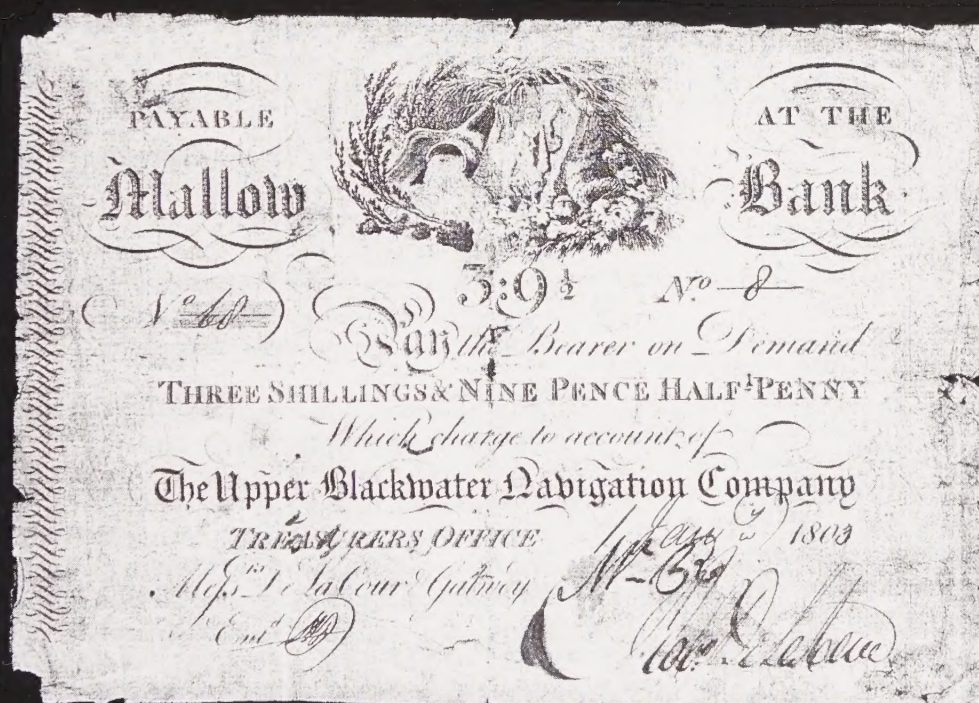 PAYABLE AT THE
Mallow Bank
3:9½
No. 68 No. 8
Pay the Bearer on Demand
THREE SHILLINGS & NINE PENCE HALF PENNY
Which charge to account of
The Upper Blackwater Navigation Company
TREASURERS OFFICE Jany 1803
Messrs De la Cour & Galwey
Entd
Delacour